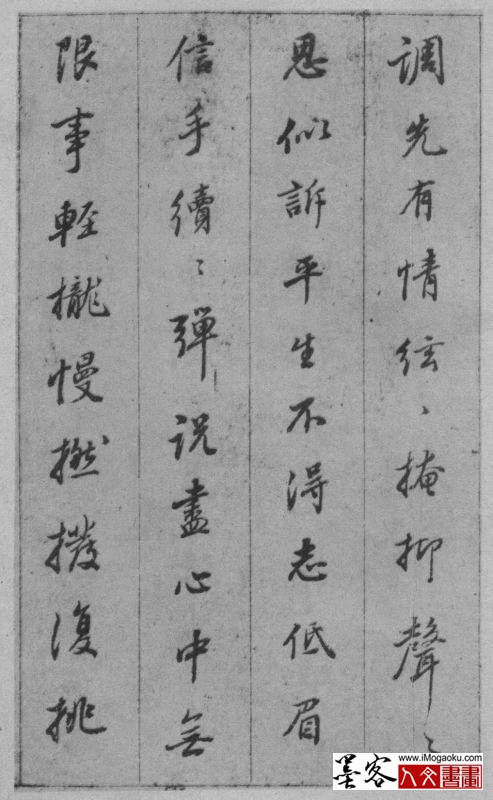 調先有情絃、掩抑聲〻
思似訴平生不得志低眉
信手續〻彈説盡心中無
限事輕攏慢撚撥復挑
www.iMogaoku.com
墨客
人文書畫